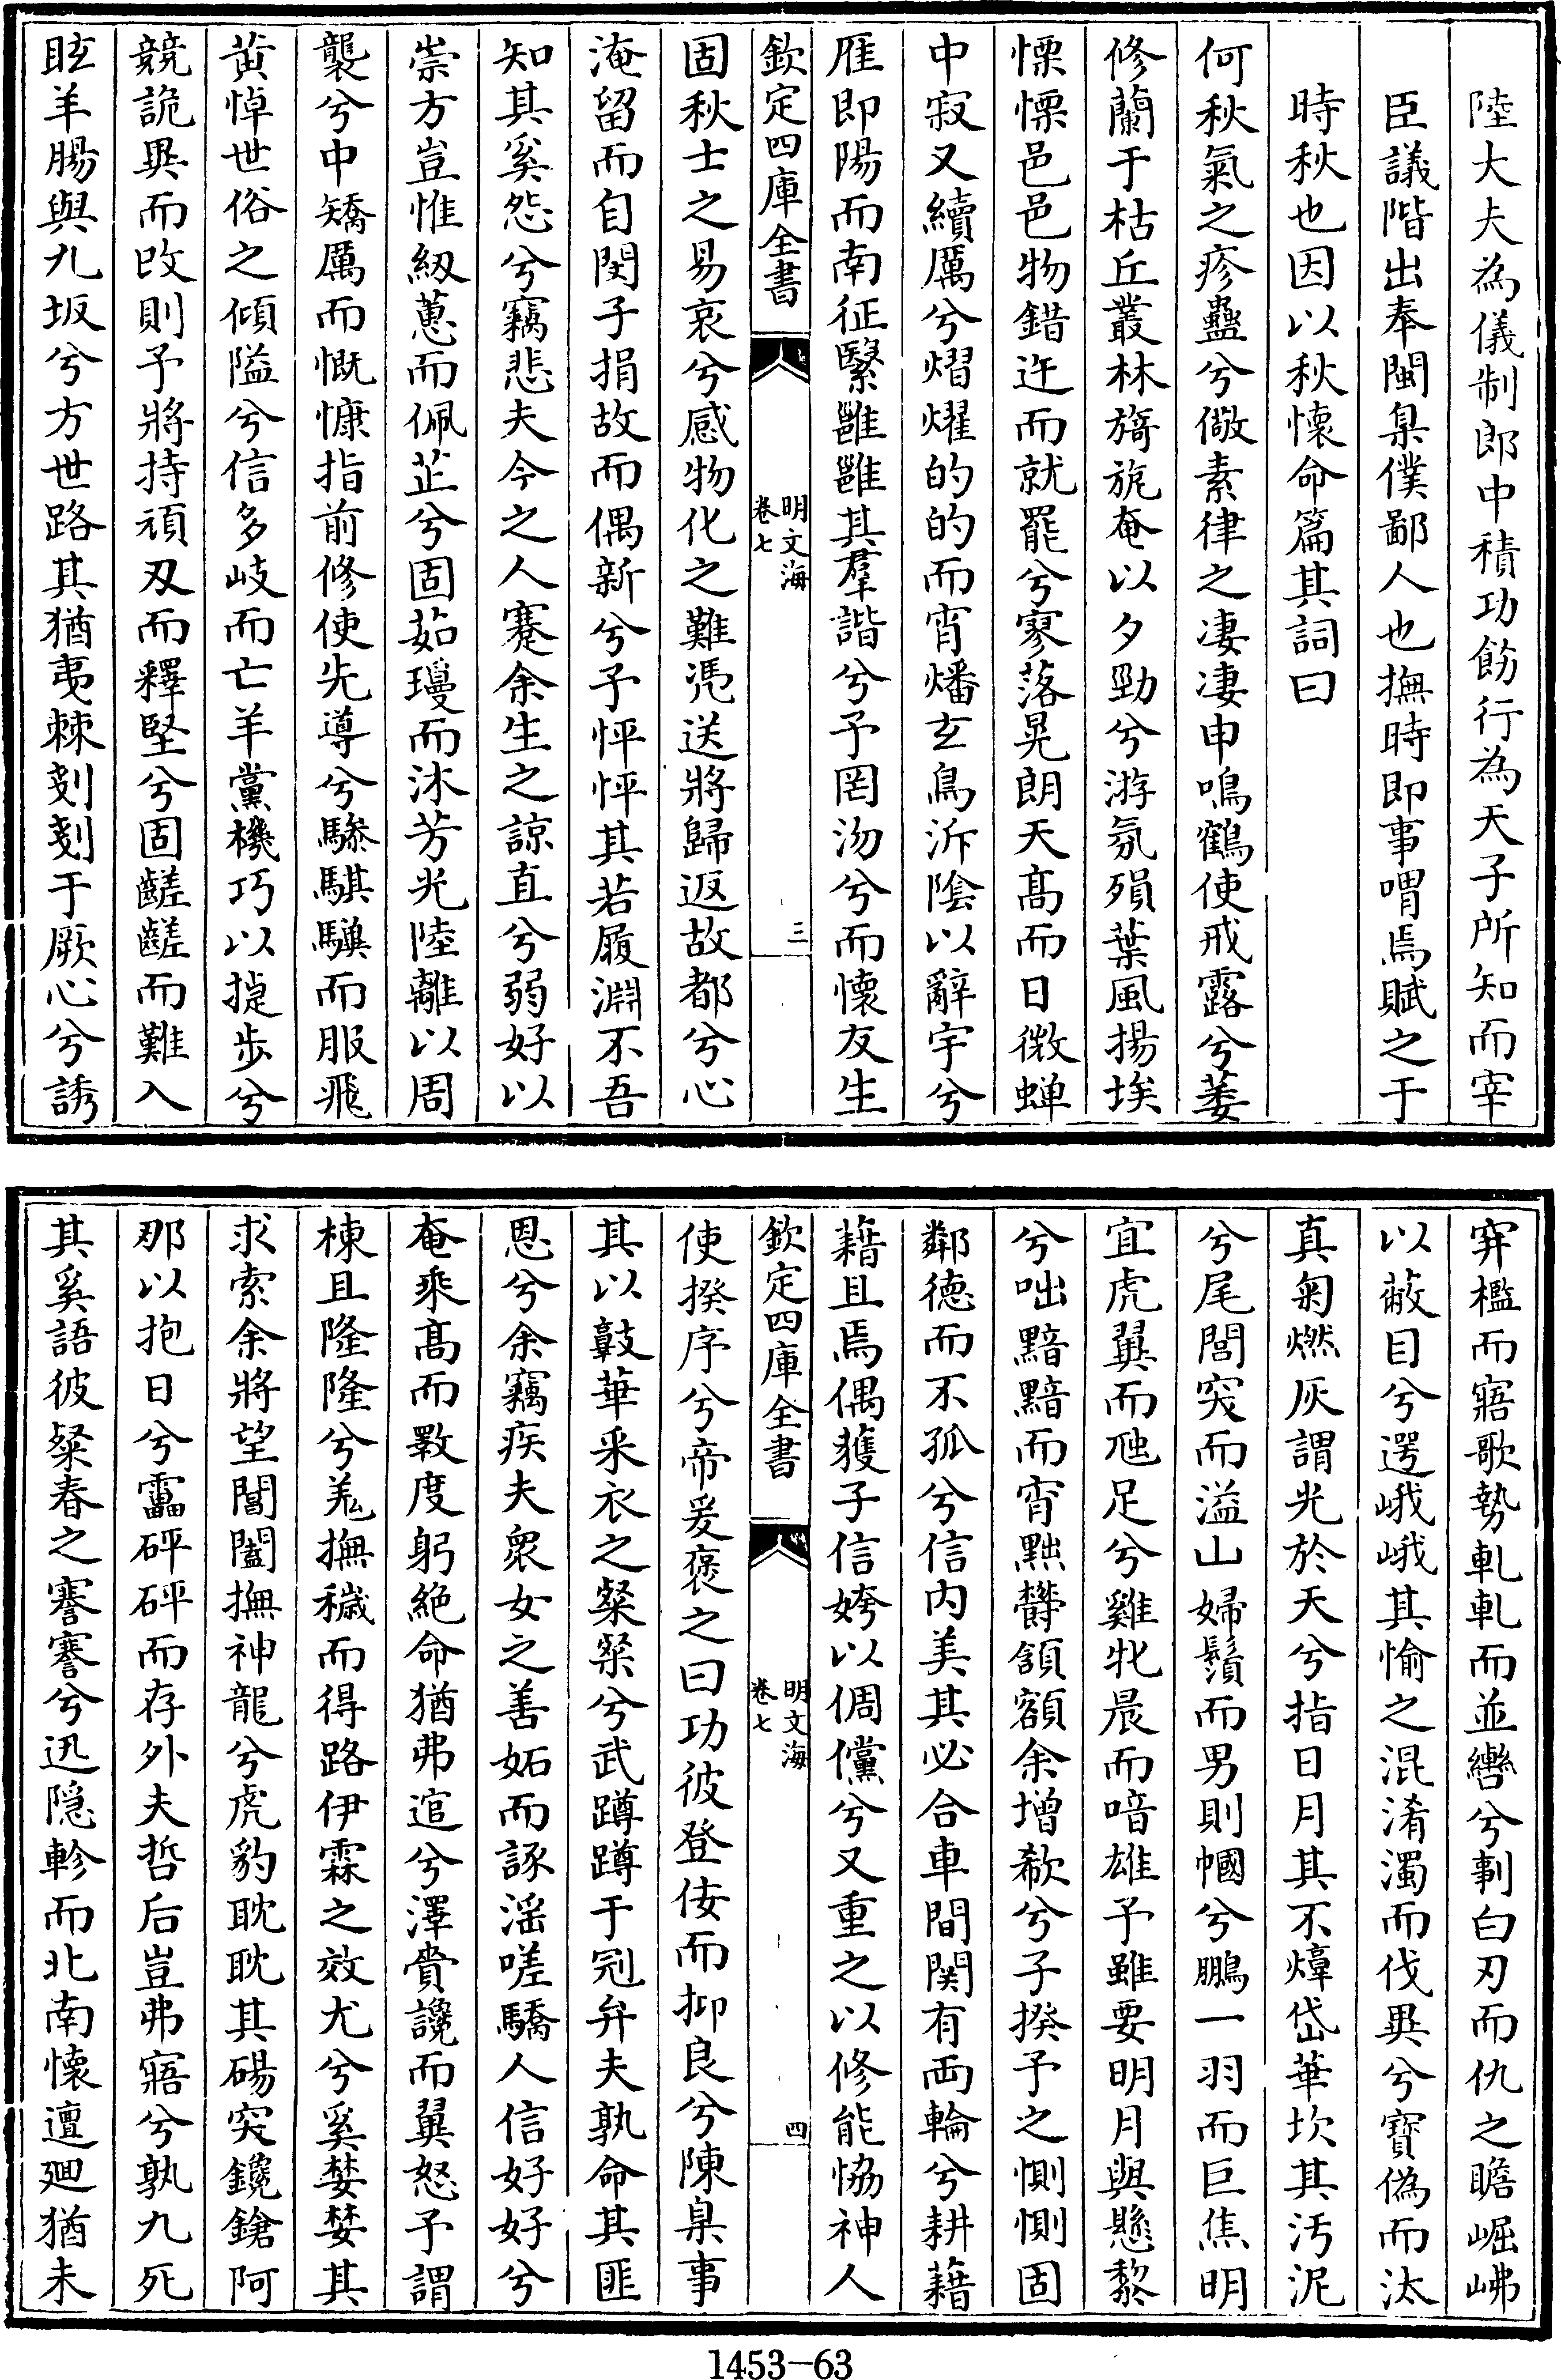 陸大夫為儀制郎中積功飭行為天子所知而宰
臣議階出奉閩臬僕鄙人也撫時即事喟焉賦之于
時秋也因以秋懷命篇其詞曰
何秋氣之疹蠱兮儆素律之凄凄申鳴鶴使戒露兮萎
修蘭于枯丘叢林旖旎奄以夕勁兮游氛殞葉風揚埃
慄慄邑邑物錯迕而就罷兮寥落晃朗天髙而日微蟬
中寂又續厲兮熠燿的的而宵燔玄鳥泝陰以辭宇兮
雁即陽而南征繄雝雝其羣諧兮予罔沕兮而懷友生
欽定四庫全書
明文海
卷七
三
固秋士之易哀兮感物化之難憑送將歸返故都兮心
淹留而自閔子捐故而偶新兮予怦怦其若履淵不吾
知其奚怨兮竊悲夫今之人蹇余生之諒直兮弱好以
崇方豈惟紉蕙而佩芷兮固茹瓊而沐芳光陸離以周
襲兮中矯厲而慨慷指前修使先導兮驂騏驥而服飛
黃悼世俗之傾隘兮信多岐而亡羊黨機巧以捷步兮
競詭異而改則予將持頑刄而釋堅兮固齹齹而難入
眩羊腸與九坂兮方世路其猶夷棘剡剡于厥心兮誘
穽檻而寤歌勢軋軋而並轡兮剚白刃而仇之瞻崛岪
以蔽目兮遌峨峨其愉之混淆濁而伐異兮寳偽而汰
真匊燃灰謂光於天兮指日月其不煒岱華坎其汚泥
兮尾閭突而溢山婦鬚而男則幗兮鵬一羽而巨焦明
宜虎翼而虺足兮雞牝晨而喑雄予雖要明月與懸黎
兮咄黯黯而宵黜欎頷額余增欷兮子揆予之惻惻固
鄰德而不孤兮信内美其必合車間関有兩輪兮耕藉
藉且焉偶獲子信姱以倜儻兮又重之以修能恊神人
欽定四庫全書
明文海
卷七
四
使揆序兮帝爰褒之曰功彼登佞而抑良兮陳臬事
其以㪣華釆衣之粲粲兮武蹲蹲于剠弁夫孰命其匪
恩兮余竊疾夫衆女之善妬而諑滛嗟驕人信好好兮
奄乘髙而斁度躬絶命猶弗逭兮澤賞讒而翼怒予謂
棟且隆隆兮羗撫穢而得路伊霖之效尤兮奚婪婪其
求索余將望閶闔撫神龍兮虎豹耽耽其碭突鑱鎗阿
那以抱日兮靁砰砰而存外夫哲后豈弗寤兮孰九死
其奚語彼粲春之謇謇兮迅隱軫而北南懷邅廻猶未
1453—63